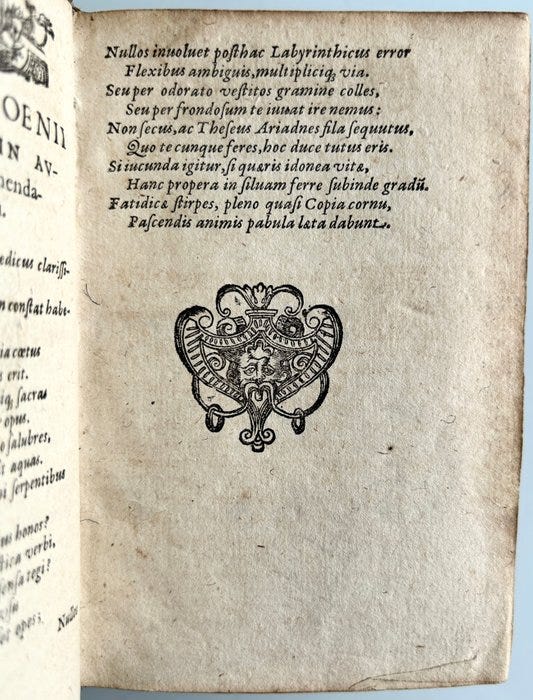 OENII
IN AV-
menda-
edicus clarissi-
n constat habe-
ia cœtus
s erit.
iq; sacras
opus.
o salubres,
t aquas.
i serpentibus
us honos?
stica verbi,
ensa tegi?
Nullos
Nullos inuoluet posthac Labyrinthicus error
Flexibus ambiguis, multipliciq; via.
Seu per odorato vestitos gramine colles,
Seu per frondosum te iuuat ire nemus:
Non secus, ac Theseus Ariadnes fila sequutus,
Quo te cunque feres, hoc duce tutus eris.
Si iucunda igitur, si quæris idonea vitæ,
Hanc propera in siluam ferre subinde gradũ.
Fatidicæ stirpes, pleno quasi Copia cornu,
Pascendis animis pabula læta dabunt.